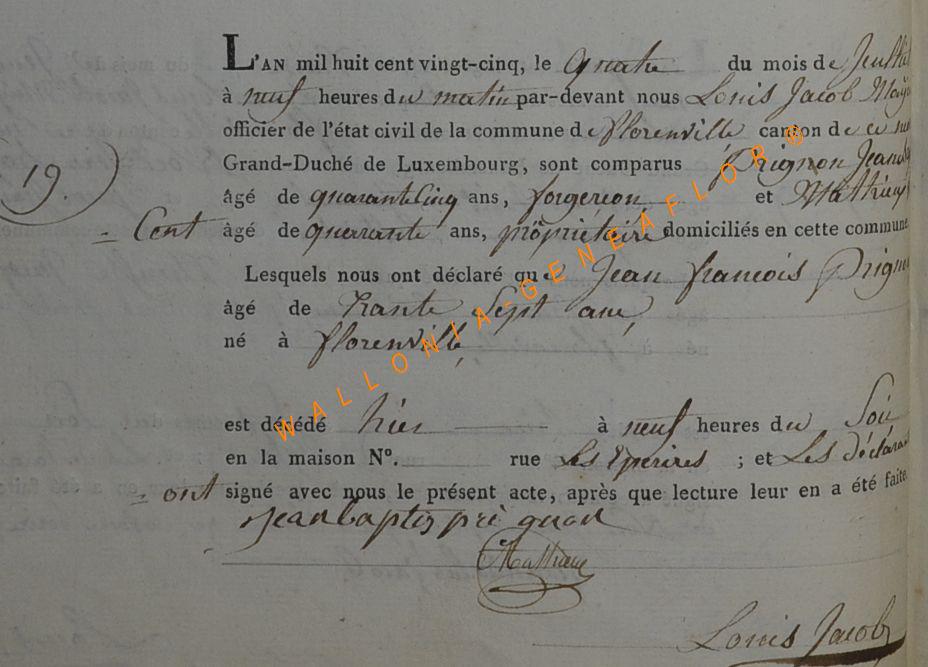 L'AN mil huit cent vingt-cinq, le quatre du mois de Jeuillet
à neuf heures du matin par-devant nous Louis Jacob May
officier de l'état civil de la commune de florenville canton de ce
Grand-Duché de Luxembourg, sont comparus Prignon Jean
19.
âgé de quarantcinq ans, forgeron et Mathieu
= Cent âgé de quarante ans, propriétaire domiciliés en cette commune
Lesquels nous ont déclaré que Jean francois Prignon
âgé de trante Sept ans,
né à florenville,
est décédé hier à neuf heures du Soir
en la maison N°. rue Les Eperires ; et Les déclarant
= ont signé avec nous le présent acte, après que lecture leur en a été faite
jean baptis prignon
Mathieu
Louis Jacob
WALLONIA-GENEAFLOR®